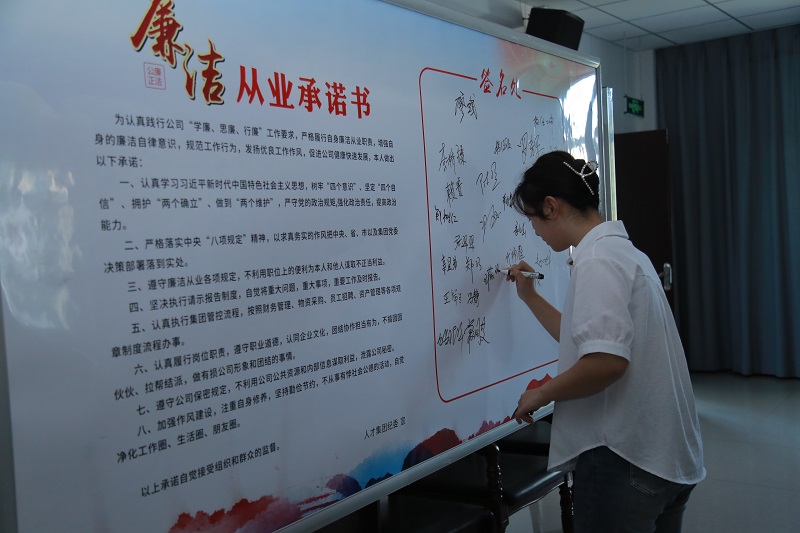 廉洁
公廉
正洁
从业承诺书
为认真践行公司“学廉、思廉、行廉”工作要求，严格履行自身廉洁从业职责，增强自
身的廉洁自律意识，规范工作行为，发扬优良工作作风，促进公司健康快速发展，本人做出
以下承诺：
一、认真学习习近平新时代中国特色社会主义思想，树牢“四个意识”、坚定“四个自
信”、拥护“两个确立”、做到“两个维护”，严守党的政治规矩，强化政治责任，提高政治
能力。
二、严格落实中央“八项规定”精神，以求真务实的作风把中央、省、市以及集团党委
决策部署落到实处。
三、遵守廉洁从业各项规定，不利用职位上的便利为本人和他人谋取不正当利益。
四、坚决执行请示报告制度，自觉将重大问题，重大事项，重要工作及时报告。
五、认真执行集团管控流程，按照财务管理、物资采购、员工招聘、资产管理等各项规
章制度流程办事。
六、认真履行岗位职责，遵守职业道德，认同企业文化，团结协作担当有为，不搞团团
伙伙、拉帮结派，做有损公司形象和团结的事情。
七、遵守公司保密规定，不利用公司公共资源和内部信息谋取利益，泄露公司秘密。
八、加强作风建设，注重自身修养，坚持勤俭节约，不从事有悖社会公德的活动，自觉
净化工作圈、生活圈、朋友圈。
以上承诺自觉接受组织和群众的监督。
人才集团纪委 宣
签名处